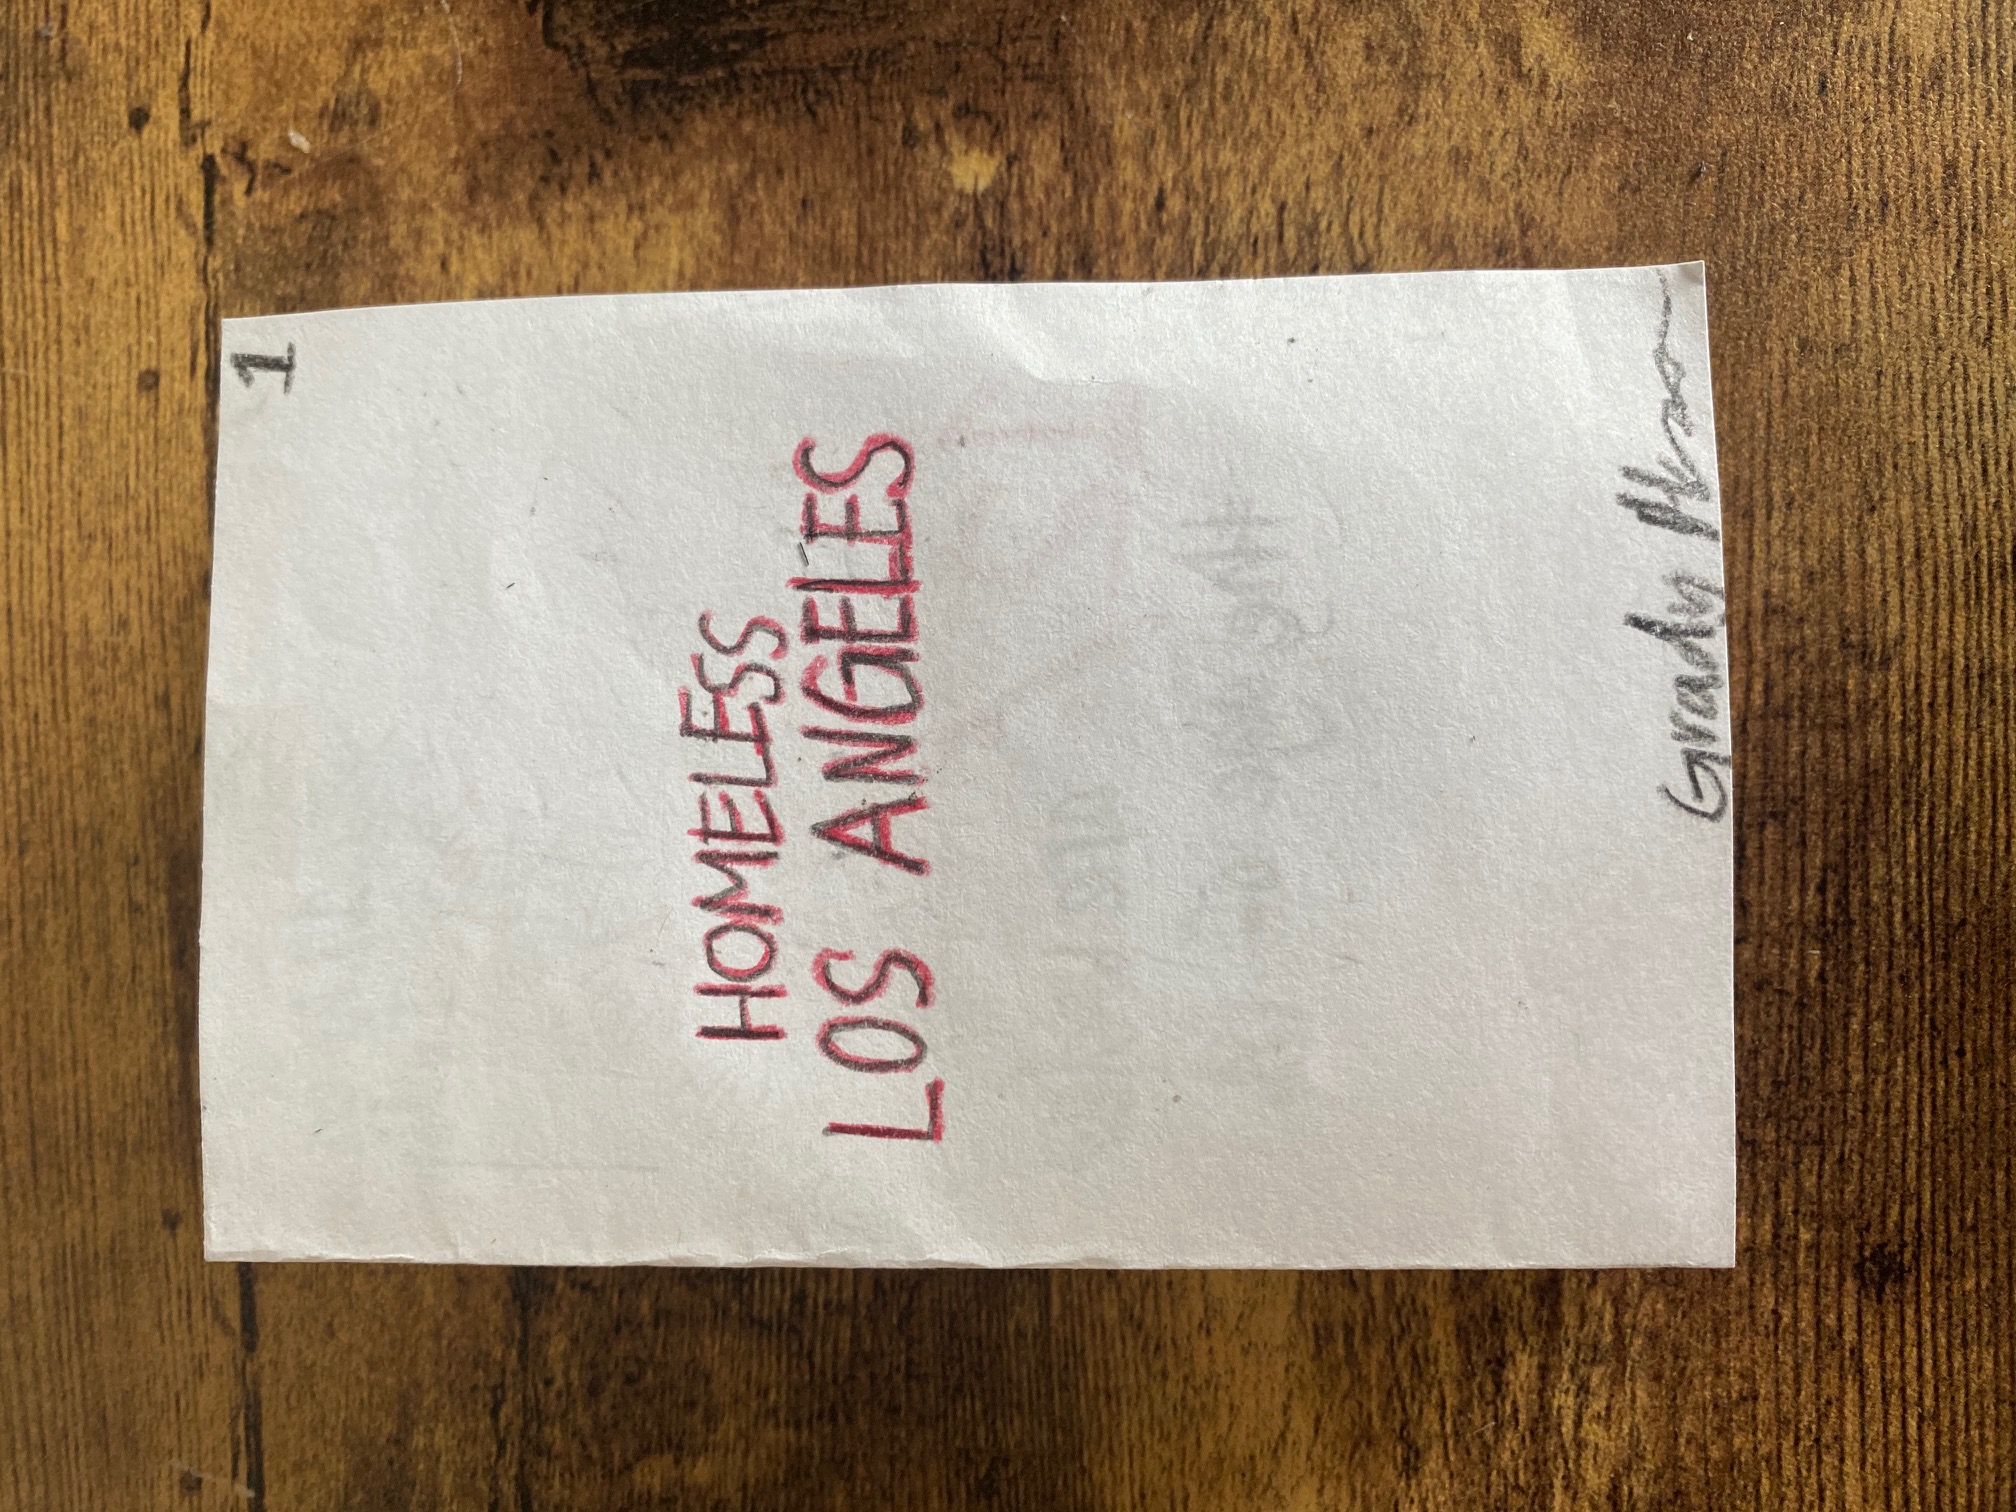 1
HOMELESS
LOS ANGELES
Grady